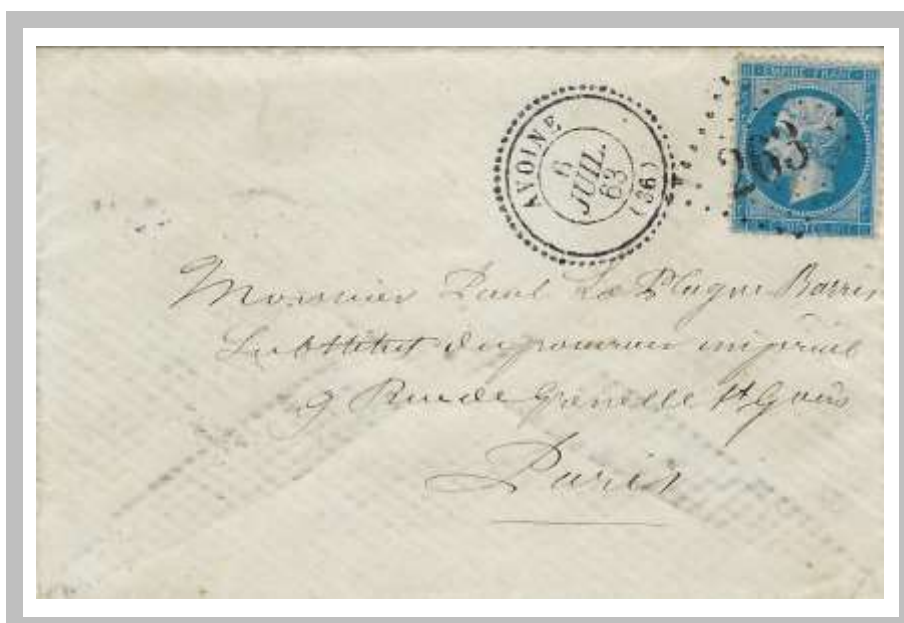 AVOINE
6
JUIL.
63
(36)
EMPIRE FRANC
263
POSTES
Monsieur Paul La Plagne Barris
Substitut du procureur impérial
9 Rue de Grenelle St G
Paris